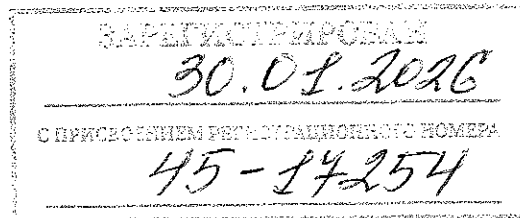 ЗАРЕГИСТРИРОВАН
30.01.2026
С ПРИСВОЕНИЕМ РЕГИСТРАЦИОННОГО НОМЕРА
45-17254